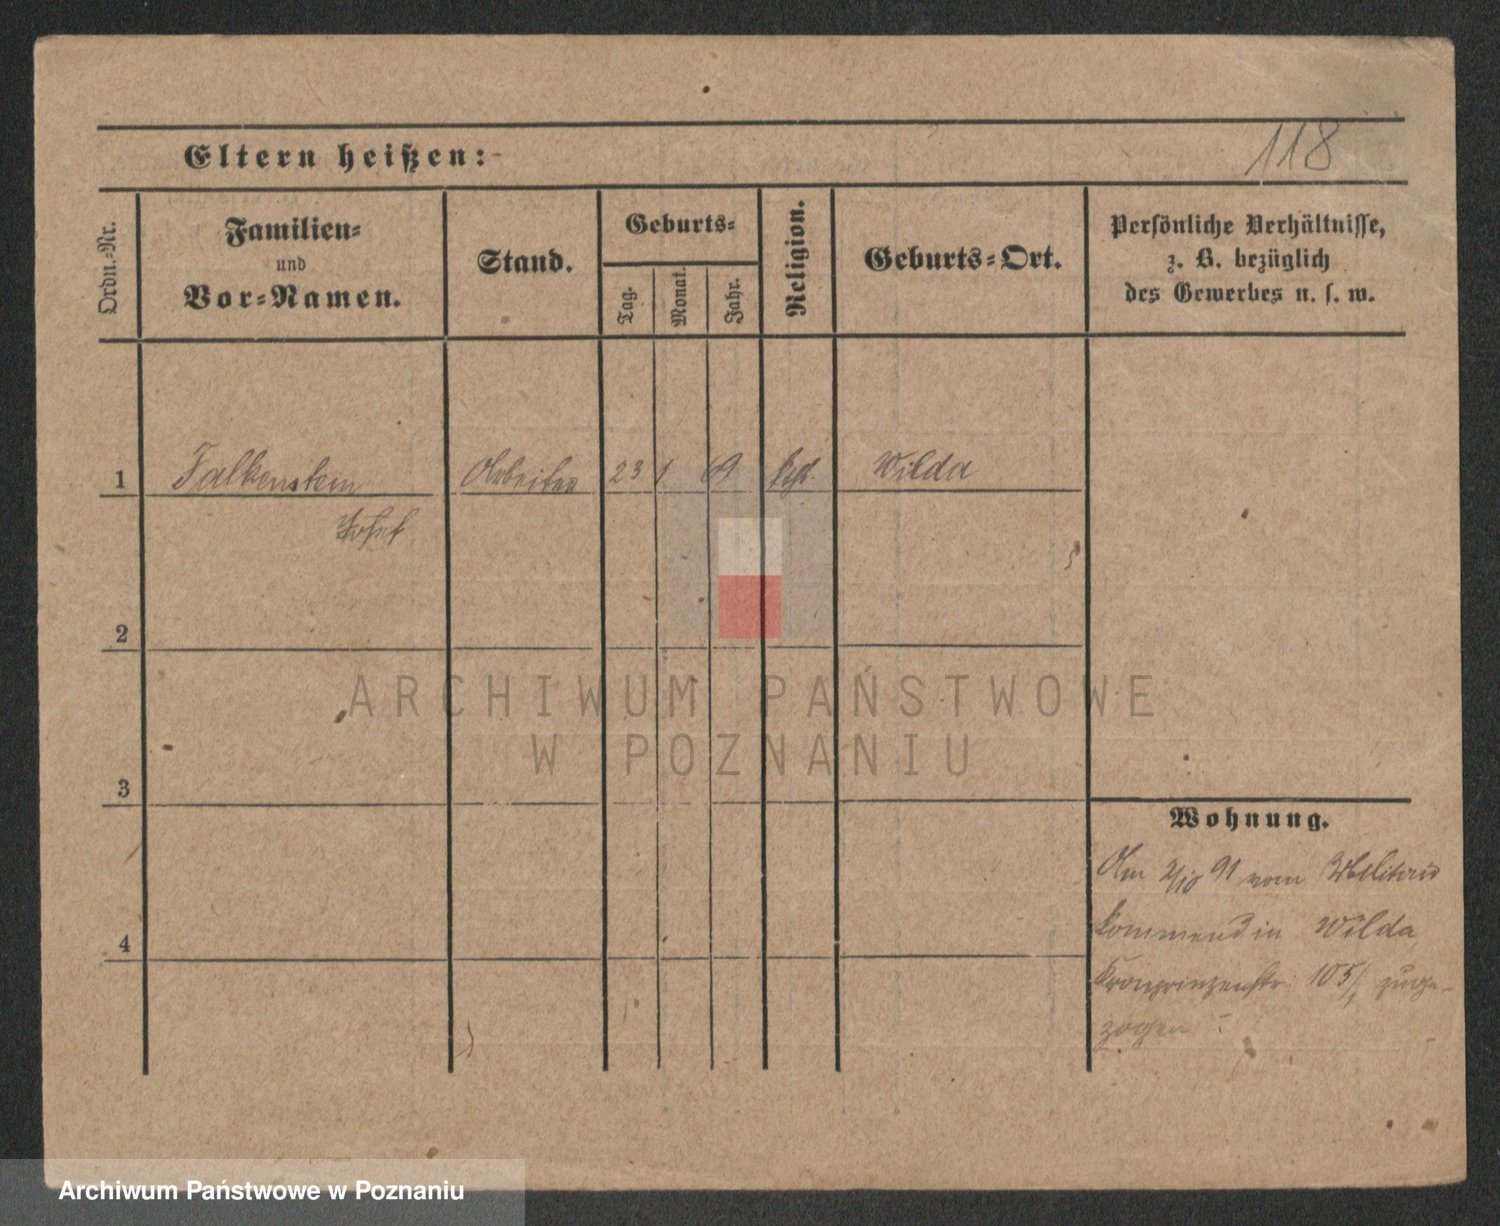 118
Eltern heißen:
Ordn.-Nr.
Familien-
und
Vor-Namen.
Stand.
Geburts-
Tag.
Monat.
Jahr.
Religion.
Geburts-Ort.
Persönliche Verhältnisse,
z. B. bezüglich
des Gewerbes u. s. w.
1
Falkenstein
Arbeiter
23
1
69
Wilda
Josef
2
ARCHIWUM PAŃSTWOWE
W POZNANIU
3
Wohnung.
Am 2/10 91 vom Militair
kommend in Wilda
Kronprinzenstr. 105/1 zuge-
zogen
4
Archiwum Państwowe w Poznaniu